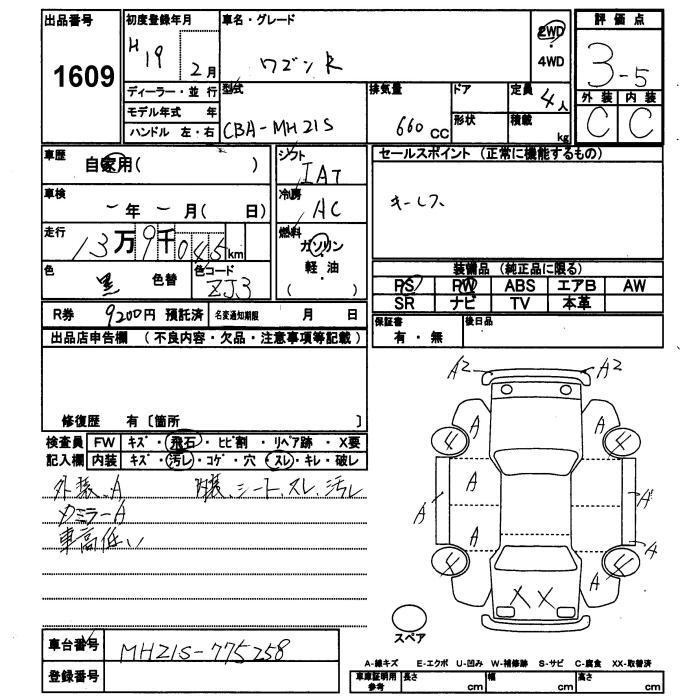 出品番号
1609
初度登録年月
H19 2月
ディーラー・並行
モデル年式 年
ハンドル 左・右
車名・グレード
ワゴンR
2WD
4WD
型式
CBA-MH21S
排気量
660 CC
ドア
形状
定員
4人
積載
kg
評価点
3-5
外装 内装
C C
車歴
自家用( )
車検
ー年ー月( 日)
走行
13万9千045km
色
黒 色替
色コード
ZJ3
シフト
IAT
冷房
AC
燃料
ガソリン
軽・油
( )
セールスポイント (正常に機能するもの)
キーレス
装備品 (純正品に限る)
PS PW ABS エアB AW
SR ナビ TV 本革
保証書
有・無
後日品
R券 9200円 預託済 名変通知期限 月 日
出品店申告欄 (不良内容・欠品・注意事項等記載)
修復歴 有〔箇所 〕
検査員 FW キズ・飛石・ヒビ割・リペア跡・X要
記入欄 内装 キズ・汚レ・コゲ・穴・スレ・キレ・破レ
外装、A 内装、シート、スレ、汚レ
ミラーA
車高低い
A2 A2
A A
4 4
A A A A
A A
4 A 4
X X
スペア
車台番号
MH21S-775258
登録番号
A-線キズ E-エクボ U-凹み W-補修跡 S-サビ C-腐食 XX-取替済
車庫証明用参考 長さ cm 幅 cm 高さ cm